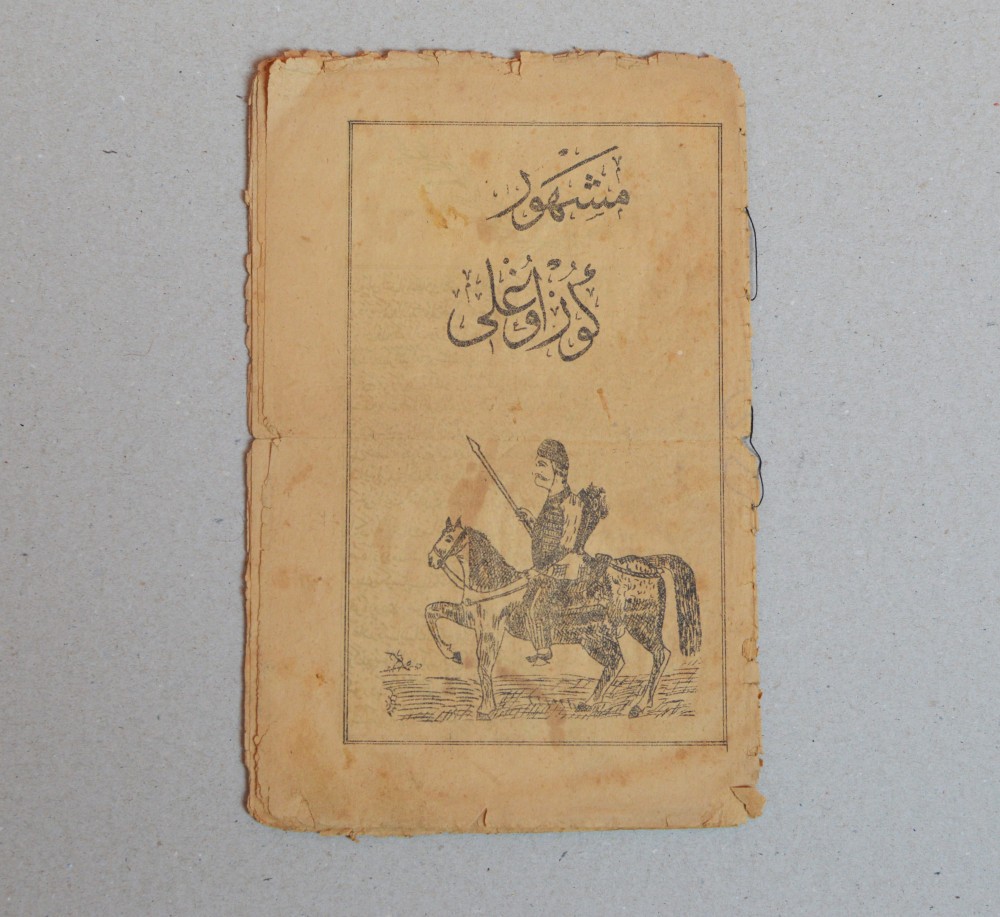 مشهور
كور اوغلى